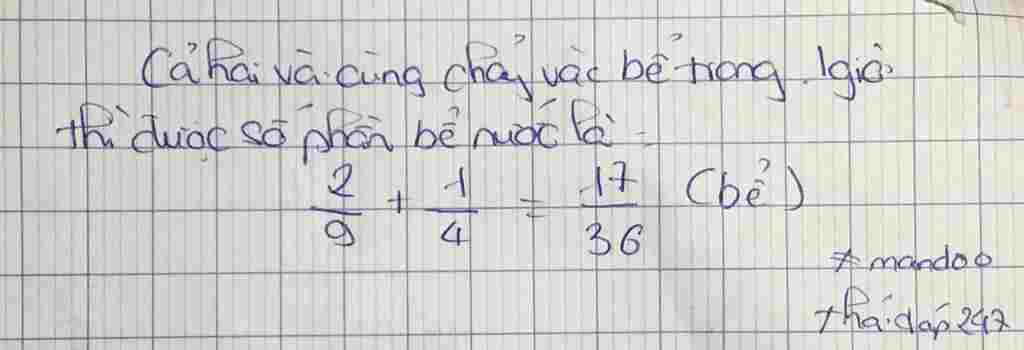 Cả hai vò cùng chảy vào bể trong 1 giờ
thì được số phần bể nước là
2/9 + 1/4 = 17/36 (bể)
* mandoo
+hỏi đáp 247